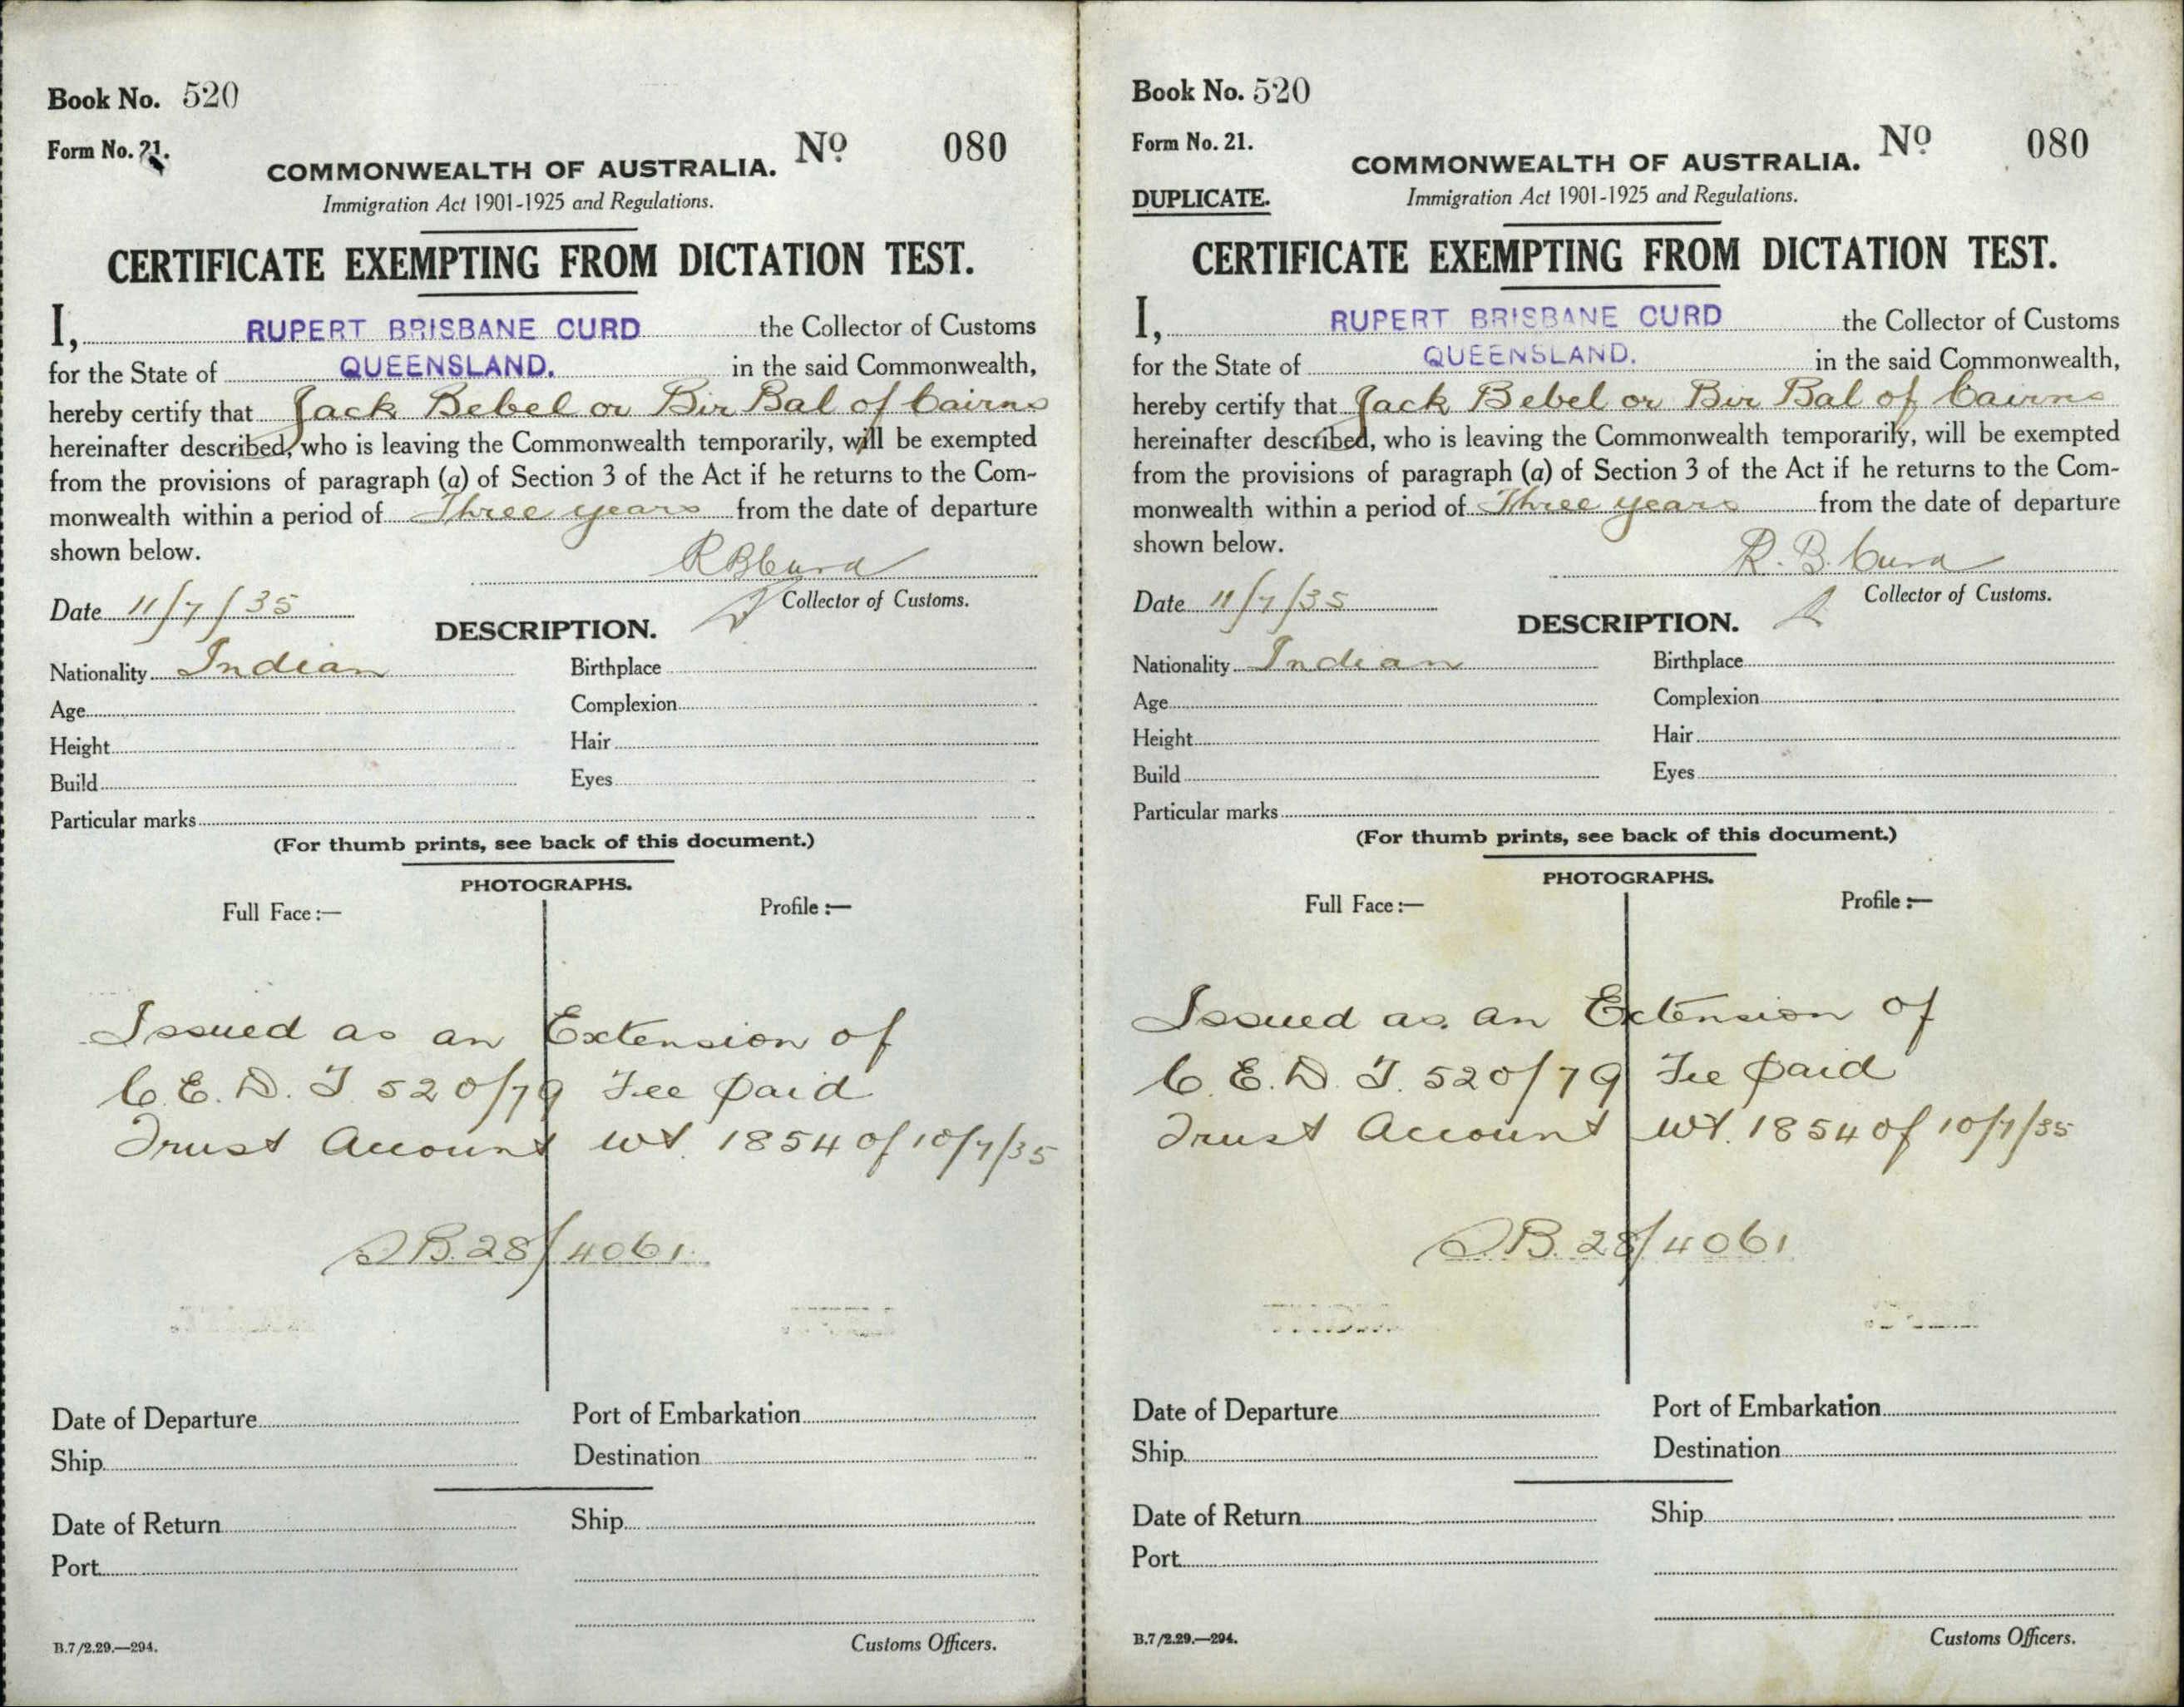 Book No. 520
Form No. 21.
COMMONWEALTH OF AUSTRALIA. No 080
Immigration Act 1901-1925 and Regulations.
CERTIFICATE EXEMPTING FROM DICTATION TEST.
I, RUPERT BRISBANE CURD the Collector of Customs
for the State of QUEENSLAND. in the said Commonwealth,
hereby certify that Jack Bebel or Bir Bal of Cairns
hereinafter described, who is leaving the Commonwealth temporarily, will be exempted
from the provisions of paragraph (a) of Section 3 of the Act if he returns to the Com-
monwealth within a period of Three years from the date of departure
shown below.
R B Curd
Date 11/7/35 Collector of Customs.
DESCRIPTION.
Nationality Indian Birthplace
Age Complexion
Height Hair
Build Eyes
Particular marks
(For thumb prints, see back of this document.)
PHOTOGRAPHS.
Full Face :— Profile :—
Issued as an Extension of
C. E. D. T 520/79 Fee paid
Trust Account wt. 1854 of 10/7/35
28/4061.
Date of Departure Port of Embarkation
Ship Destination
Date of Return Ship
Port
B.7/2.29.—294. Customs Officers.
Book No. 520
Form No. 21.
DUPLICATE.
COMMONWEALTH OF AUSTRALIA. No 080
Immigration Act 1901-1925 and Regulations.
CERTIFICATE EXEMPTING FROM DICTATION TEST.
I, RUPERT BRISBANE CURD the Collector of Customs
for the State of QUEENSLAND. in the said Commonwealth,
hereby certify that Jack Bebel or Bir Bal of Cairns
hereinafter described, who is leaving the Commonwealth temporarily, will be exempted
from the provisions of paragraph (a) of Section 3 of the Act if he returns to the Com-
monwealth within a period of Three years from the date of departure
shown below.
R. B. Curd
Date 11/7/35 Collector of Customs.
DESCRIPTION.
Nationality Indian Birthplace
Age Complexion
Height Hair
Build Eyes
Particular marks
(For thumb prints, see back of this document.)
PHOTOGRAPHS.
Full Face :— Profile :—
Issued as an Extension of
C. E. D. T. 520/79 Fee paid
Trust Account wt. 1854 of 10/7/35
28/4061
Date of Departure Port of Embarkation
Ship Destination
Date of Return Ship
Port
B.7/2.29.—294. Customs Officers.